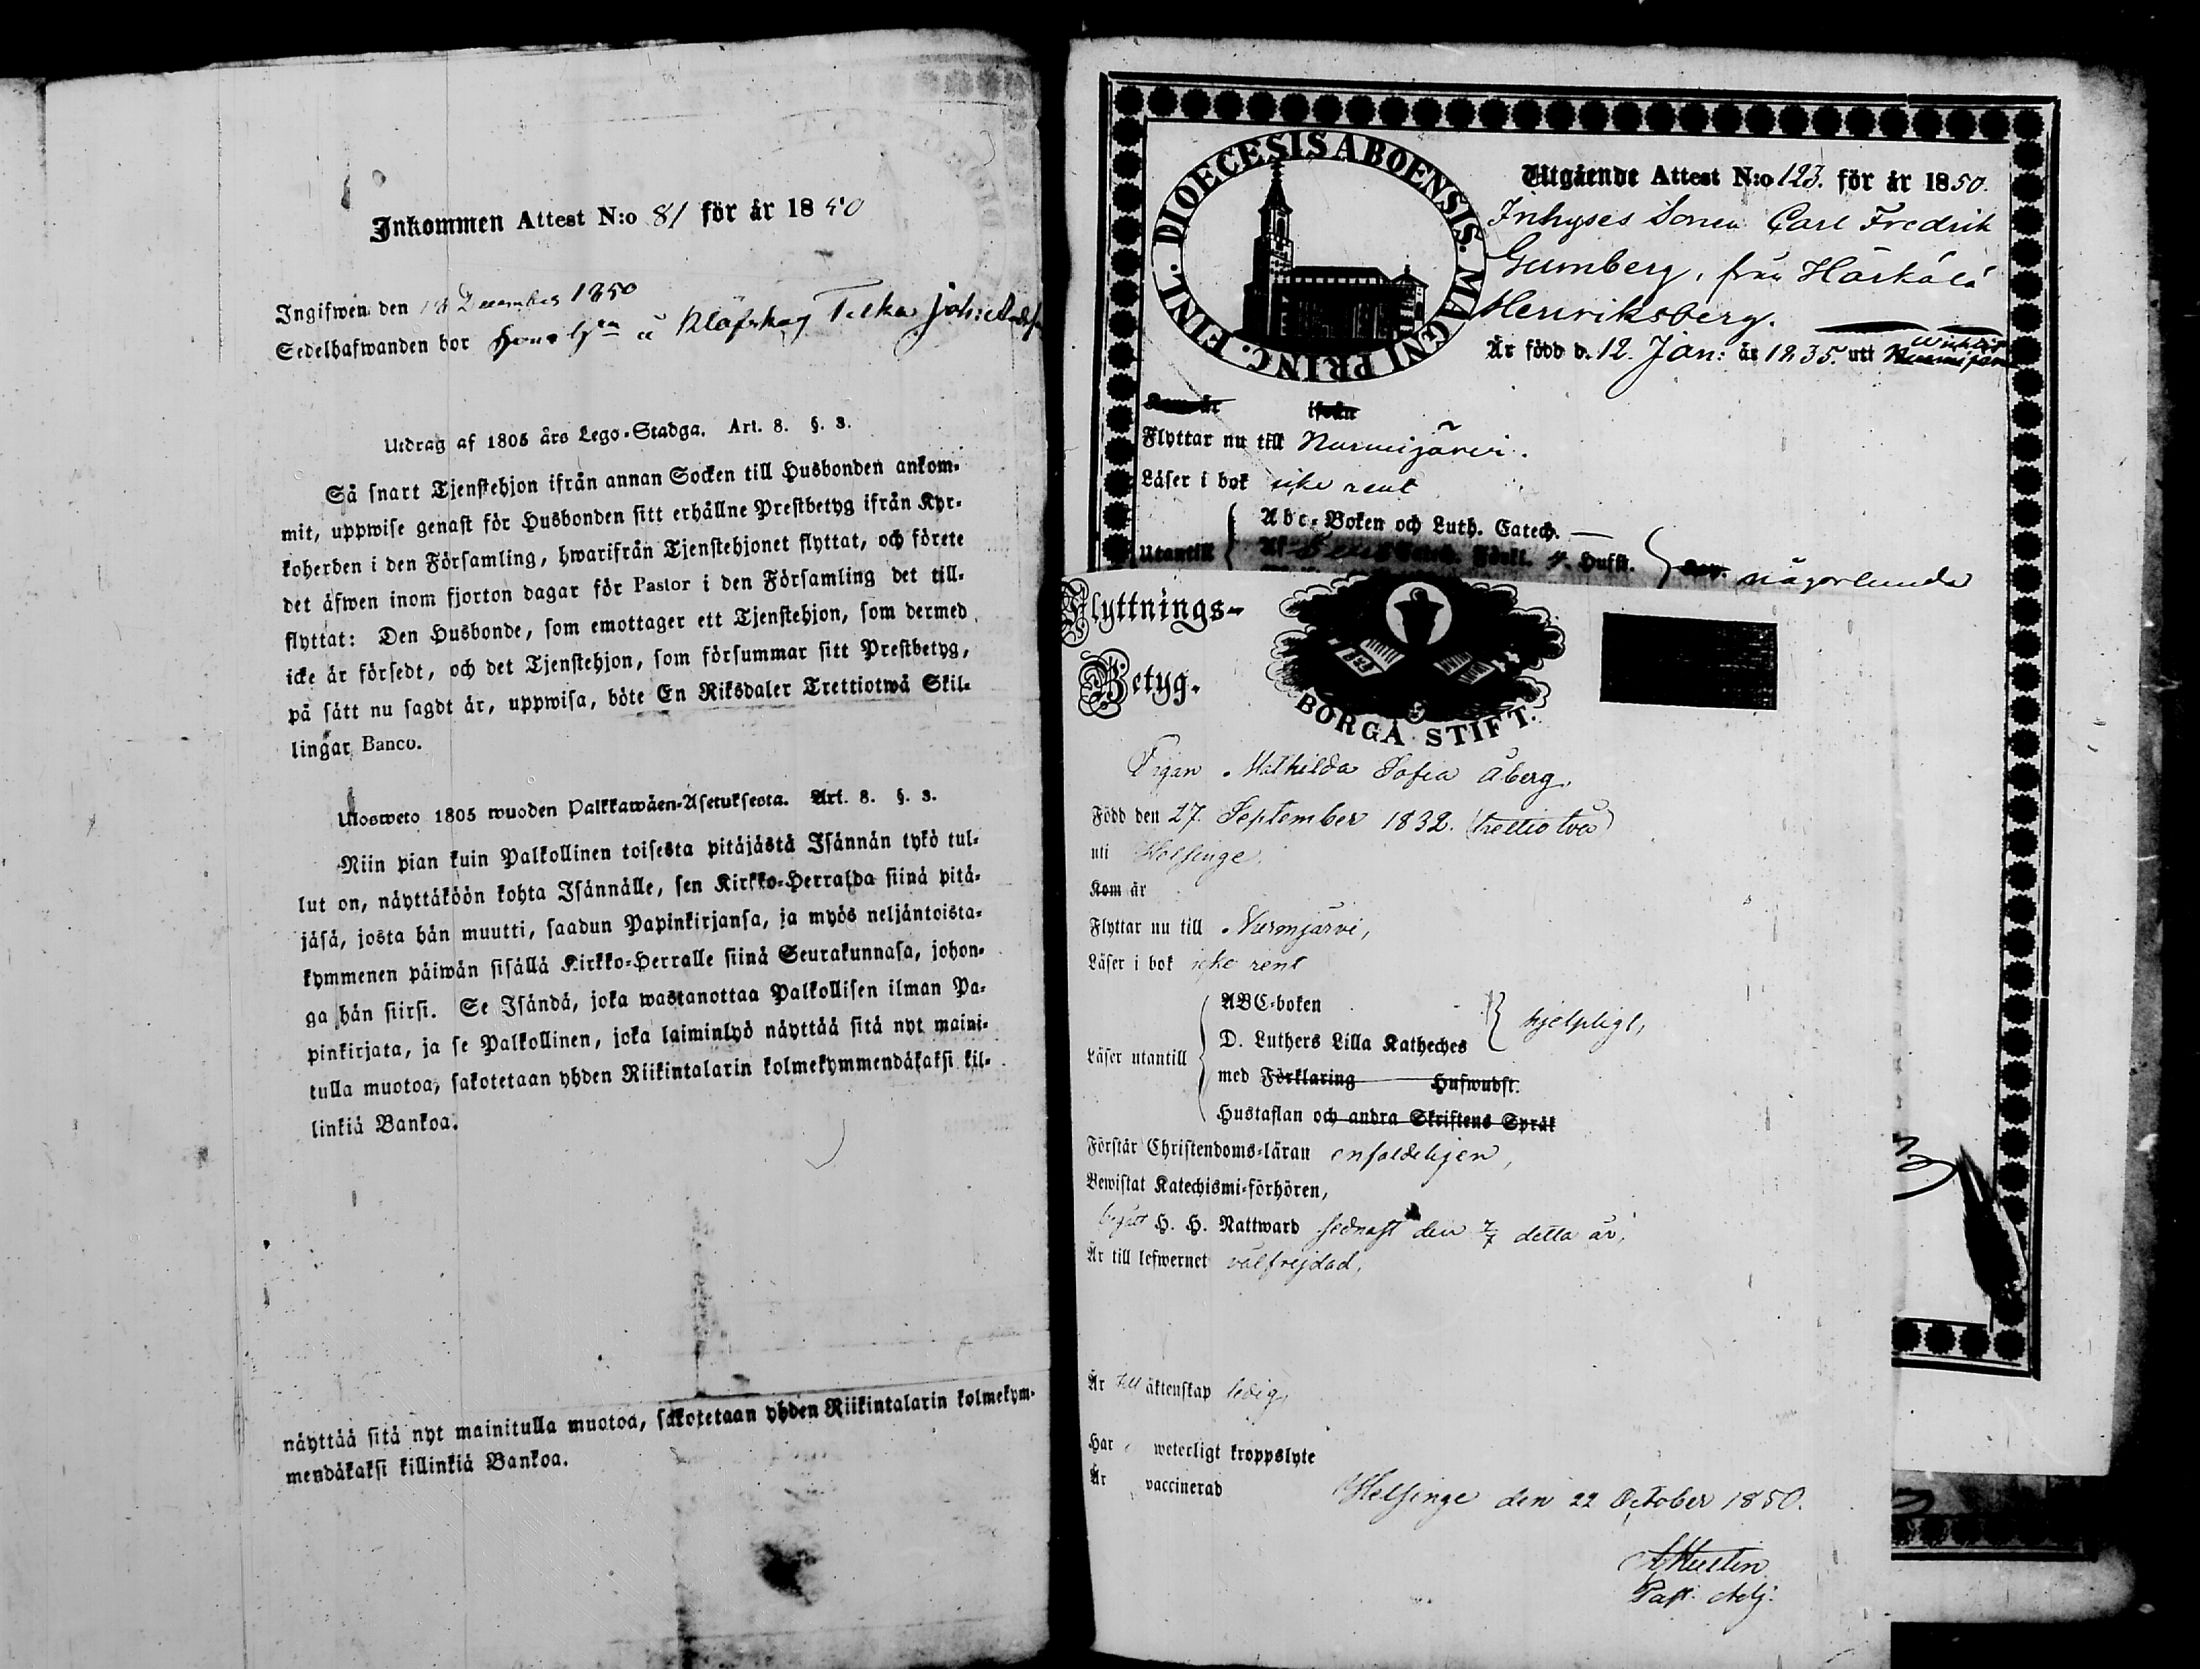 Inkommen Attest N:o 81 för år 1850
Ingifwen den 18 December 1850
Sedelhafwanden bor
Utdrag af 1805 års Lego-Stadga. Art. 8. §. 3.
Så snart Tjenstehjon ifrån annan Socken till Husbonden ankom-
mit, uppwise genast för Husbonden sitt erhållne Prestbetyg ifrån Kyr-
koherden i den Församling, hwarifrån Tjenstehjonet flyttat, och förete
det äfwen inom fjorton dagar för Pastor i den Församling det till-
flyttat: Den Husbonde, som emottager ett Tjenstehjon, som dermed
icke är försedt, och det Tjenstehjon, som försummar sitt Prestbetyg,
på sätt nu sagdt är, uppwisa, böte En Riksdaler Trettiotwå Skil-
lingar Banco.
Ulosweto 1805 wuoden Palkkawäen-Asetuksesta. Art. 8. §. 3.
Niin pian kuin Palkollinen toisesta pitäjästä Isännän tykö tul-
lut on, näyttäköön kohta Isännälle, sen Kirkko-Herralda siinä pitä-
jäsä, josta hän muutti, saadun Papinkirjansa, ja myös neljäntoista-
kymmenen päiwän sisällä Kirkko-Herralle siinä Seurakunnasa, johon-
ga hän siirsi. Se Isändä, joka wastanottaa Palkollisen ilman Pa-
pinkirjata, ja se Palkollinen, joka laiminlyö näyttää sitä nyt maini-
tulla muotoa, sakotetaan yhden Riikintalarin kolmekymmendäkaksi kil-
linkiä Bankoa.
näyttää sitä nyt mainitulla muotoa, sakotetaan yhden Riikintalarin kolmekym-
mendäkaksi killinkiä Bankoa.
DIOECESIS ABOENSIS. MAGNI PRINC. FINL.
Utgående Attest N:o 123. för år 1850.
Inhyses Sonen Carl Fredrik
Gumberg, från Härkälä
Henriksberg.
Är född d. 12. Jan: år 1835. uti Wichtis
Kom år ifrån
Flyttar nu till Nurmijärvi.
Läser i bok icke rent
Abc-Boken och Luth. Catech. —
Utantill Förkl. 4. Hufst. någorlunda
Flyttnings-
Betyg.
BORGÅ STIFT.
Pigan Mathilda Sofia Åberg,
Född den 27 September 1832. (trettio två)
uti Helsinge.
Kom år
Flyttar nu till Nurmjärvi,
Läser i bok icke rent
ABC-boken
D. Luthers Lilla Katheches hjelpligt,
Läser utantill
med Förklaring Hufwudst.
Hustaflan och andra Skriftens Språk
Förstår Christendoms-läran enfaldeligen,
Bewistat Katechismi-förhören,
begått H. H. Nattward sednast den 7/7 detta år,
Är till lefwernet välfrejdad,
Är till äktenskap ledig,
Har weterligt kroppslyte
Är vaccinerad
Helsinge den 22 October 1850.
Past. Adj.